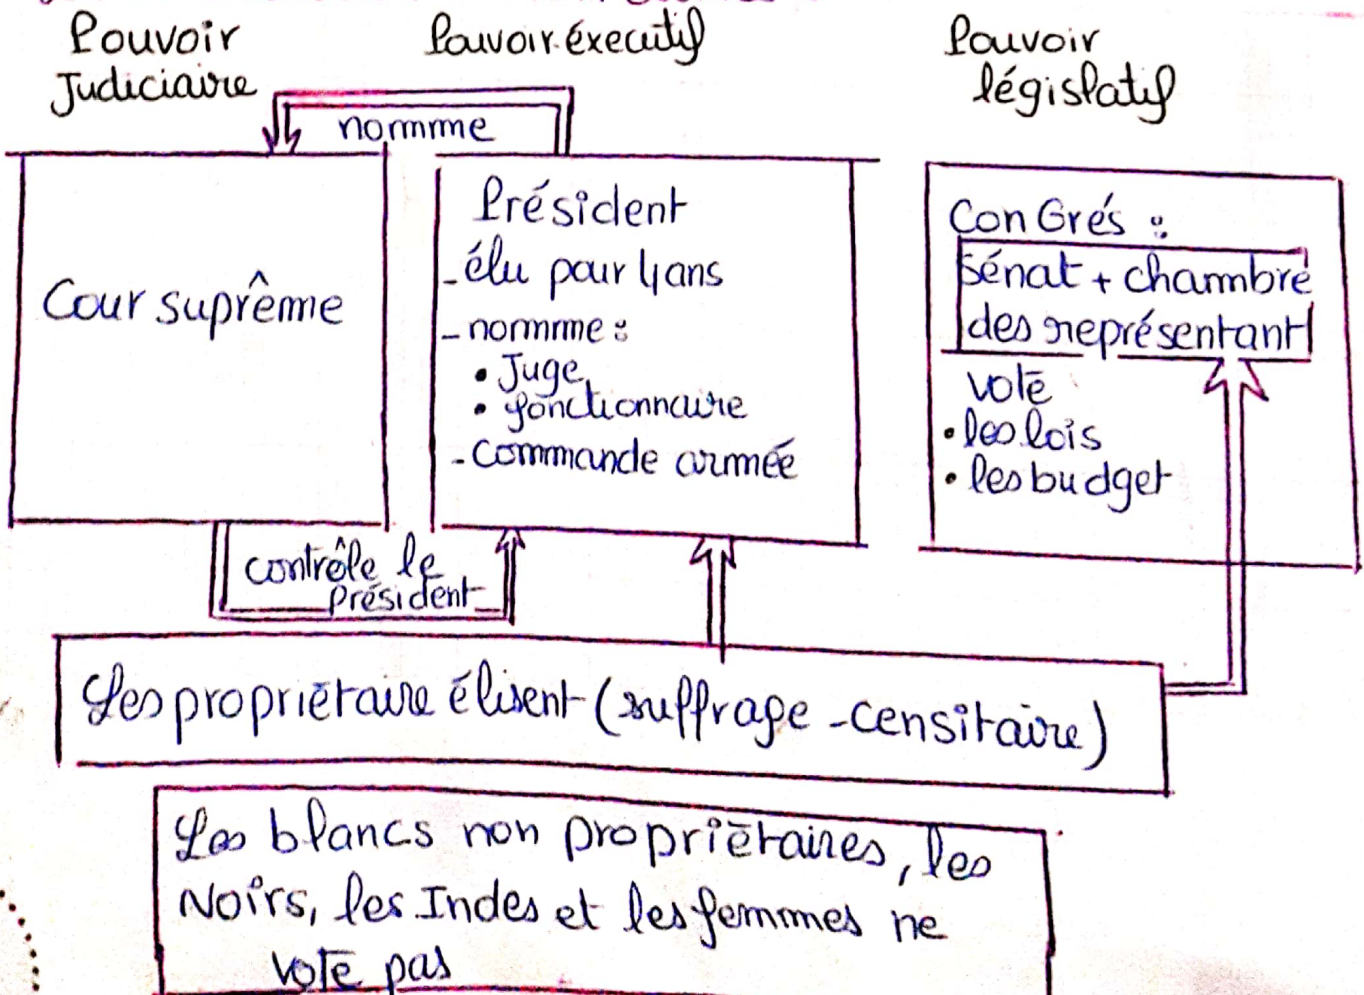 Pouvoir
Judiciaire
Pouvoir éxecutif
Pouvoir
législatif
nomme
Cour suprême
Président
- élu pour 4 ans
- nomme :
• Juge
• fonctionnaire
- Commande armée
ConGrés :
sénat + chambre
des représentant
vote
• les lois
• les budget
contrôle le
Président
Les propriétaire élisent (suffrage - censitaire)
Les blancs non propriétaires, les
Noirs, les Indes et les femmes ne
vote pas